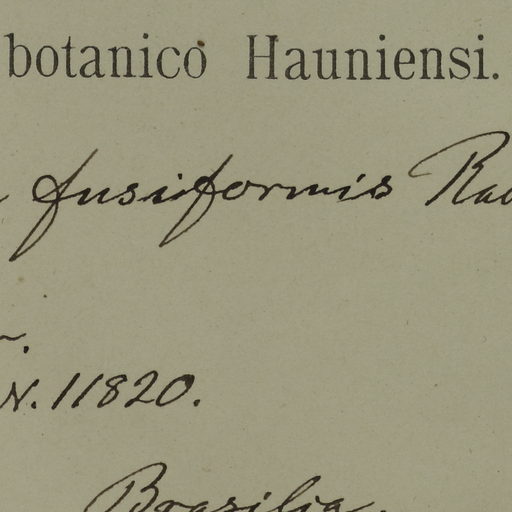 botanico Hauniensi.
fusiformis Rad
N. 11820.
Brasilia.